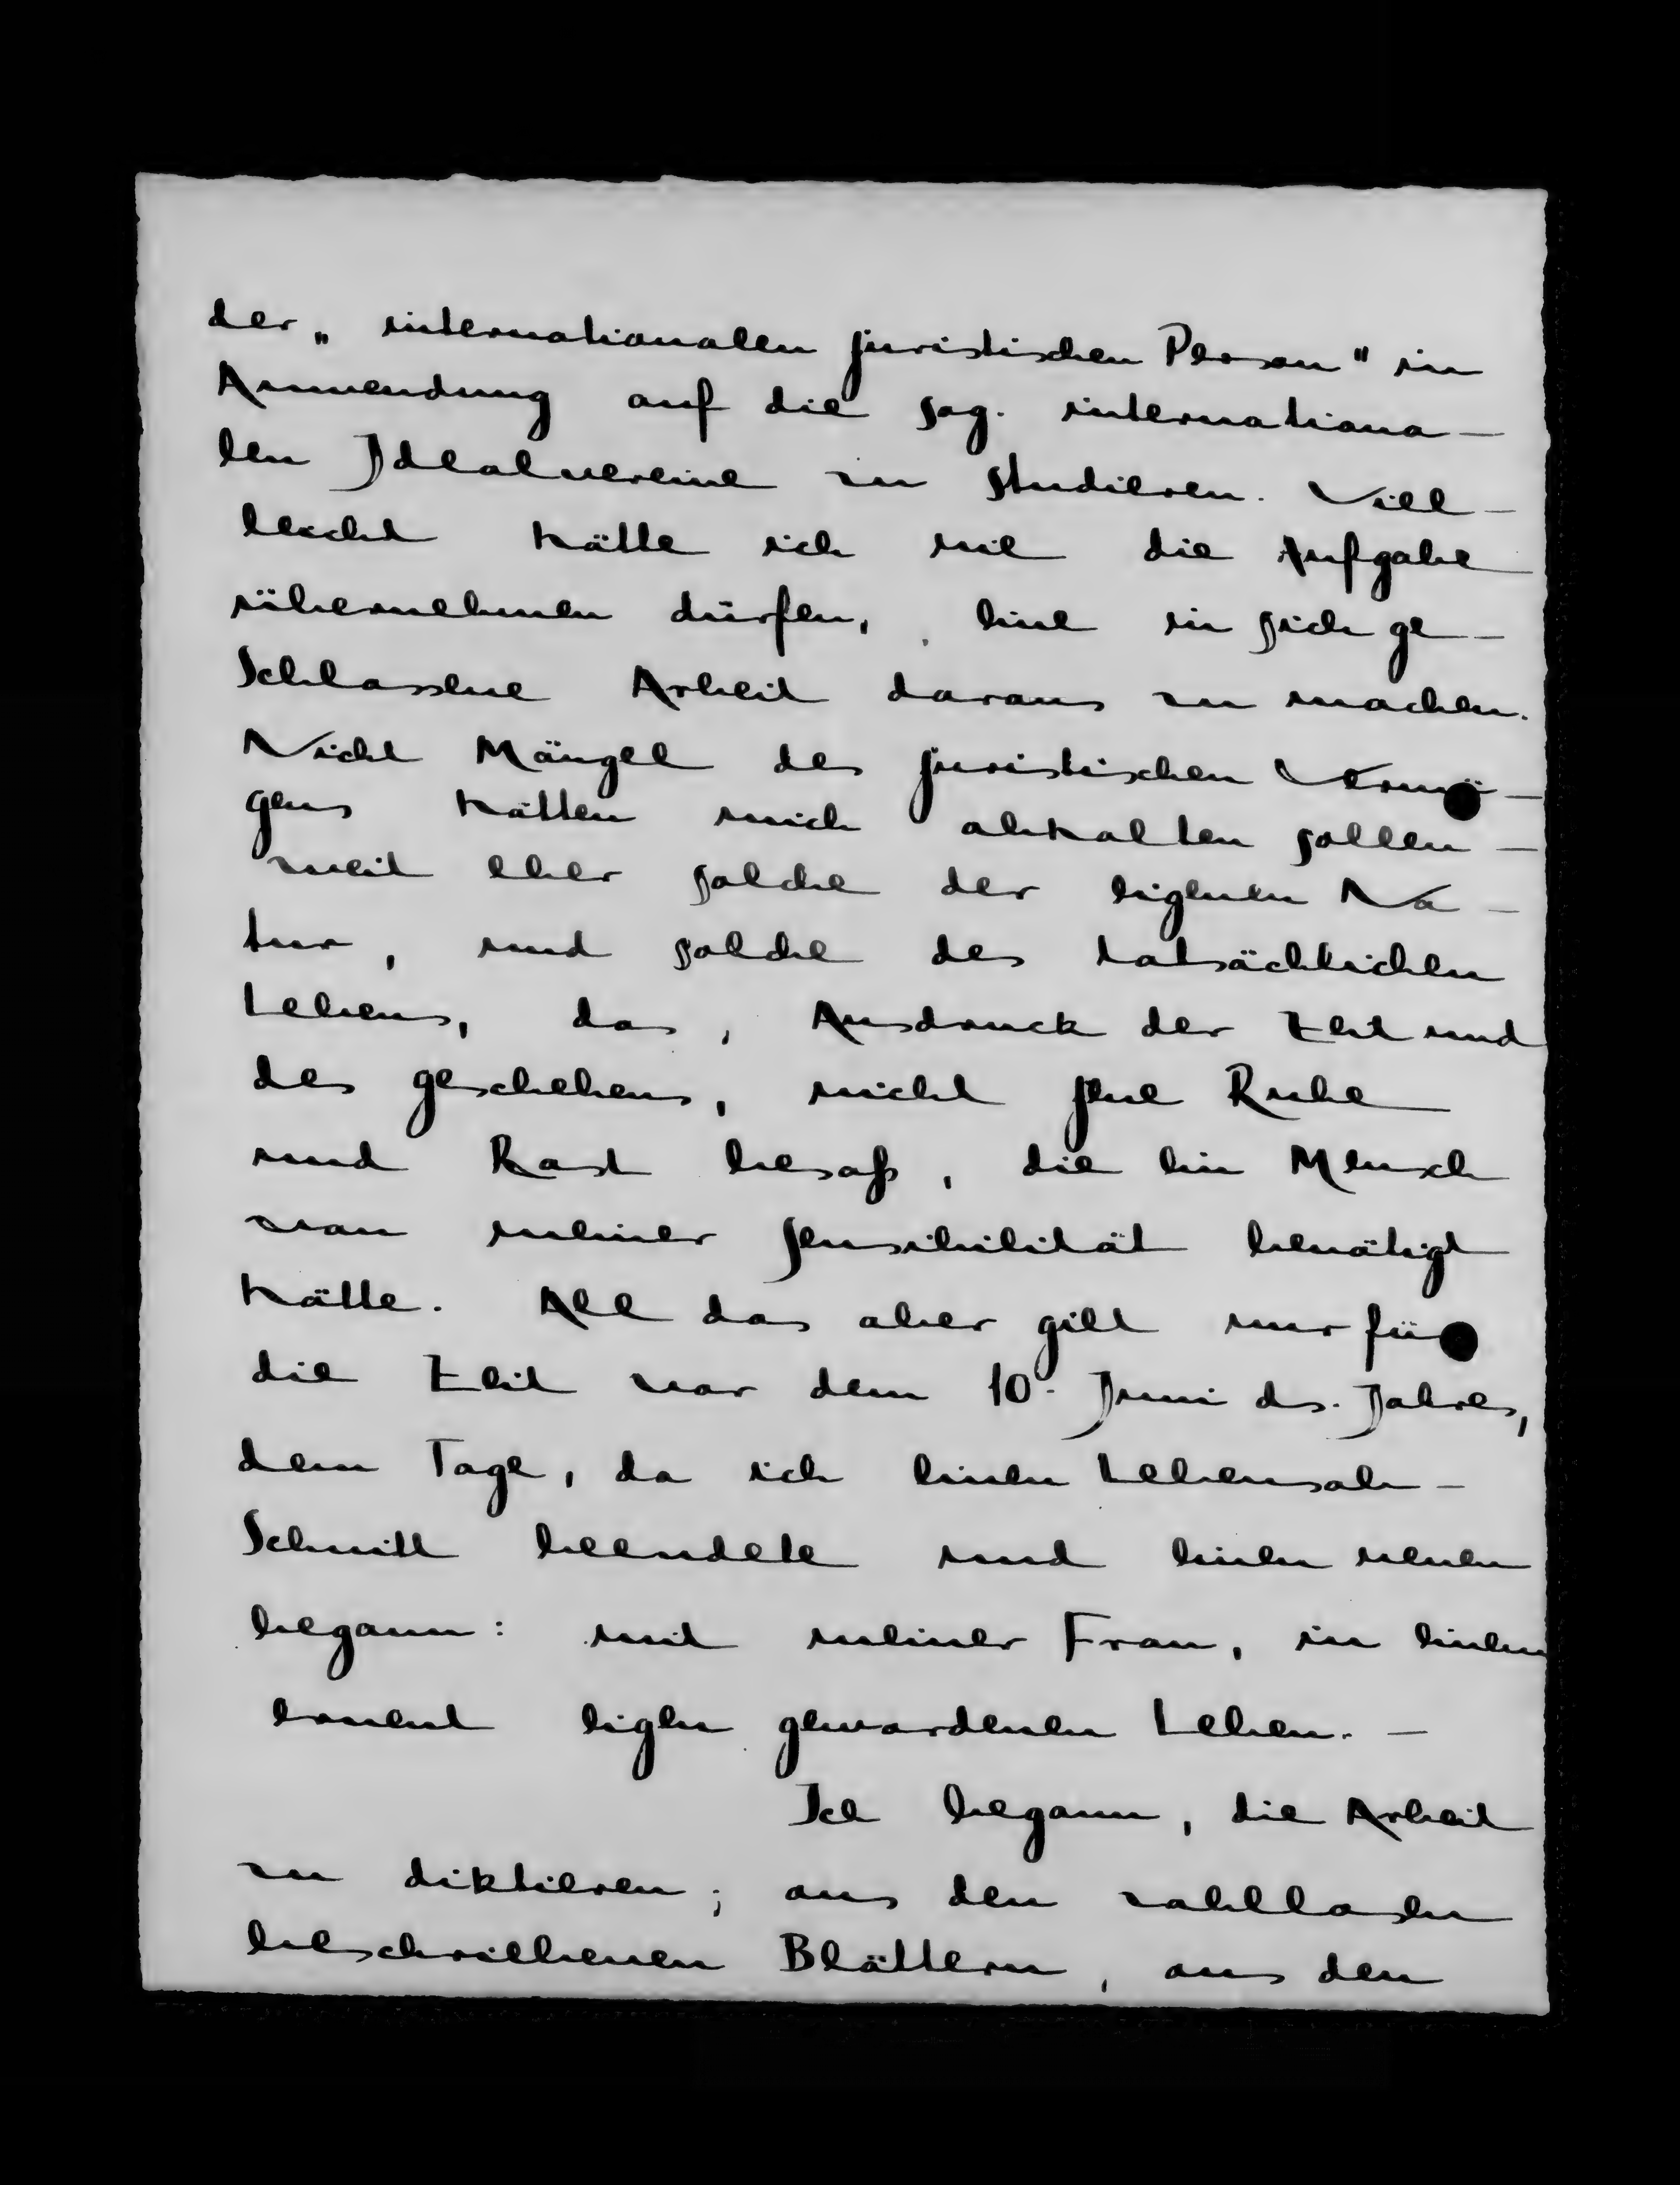 der „internationalen juristischen Person" in
Anwendung auf die sog. internationa-
len Idealvereine zu studieren. Viel-
leicht hätte ich nie die Aufgabe
übernehmen dürfen, eine in sich ge-
schlossene Arbeit daraus zu machen.
Nicht Mängel des juristischen Vermö-
gens hätten mich abhalten sollen -
weit eher solche der eigenen Na-
tur, und solche des tatsächlichen
Lebens, das, Ausdruck der Zeit und
des geschehens, nicht jene Ruhe
und Rast besaß, die ein Mensch
von meiner Sensibilität benötigt
hätte. All das aber gilt nur für
die Zeit vor dem 10. Juni ds. Jahres,
dem Tage, da ich einen Lebensab-
schnitt beendete und einen neuen
begann: mit meiner Frau, in einem
erneut eigen gewordenen Leben. -
Ich begann, die Arbeit
zu diktieren; aus den zahllosen
beschriebenen Blättern, aus den